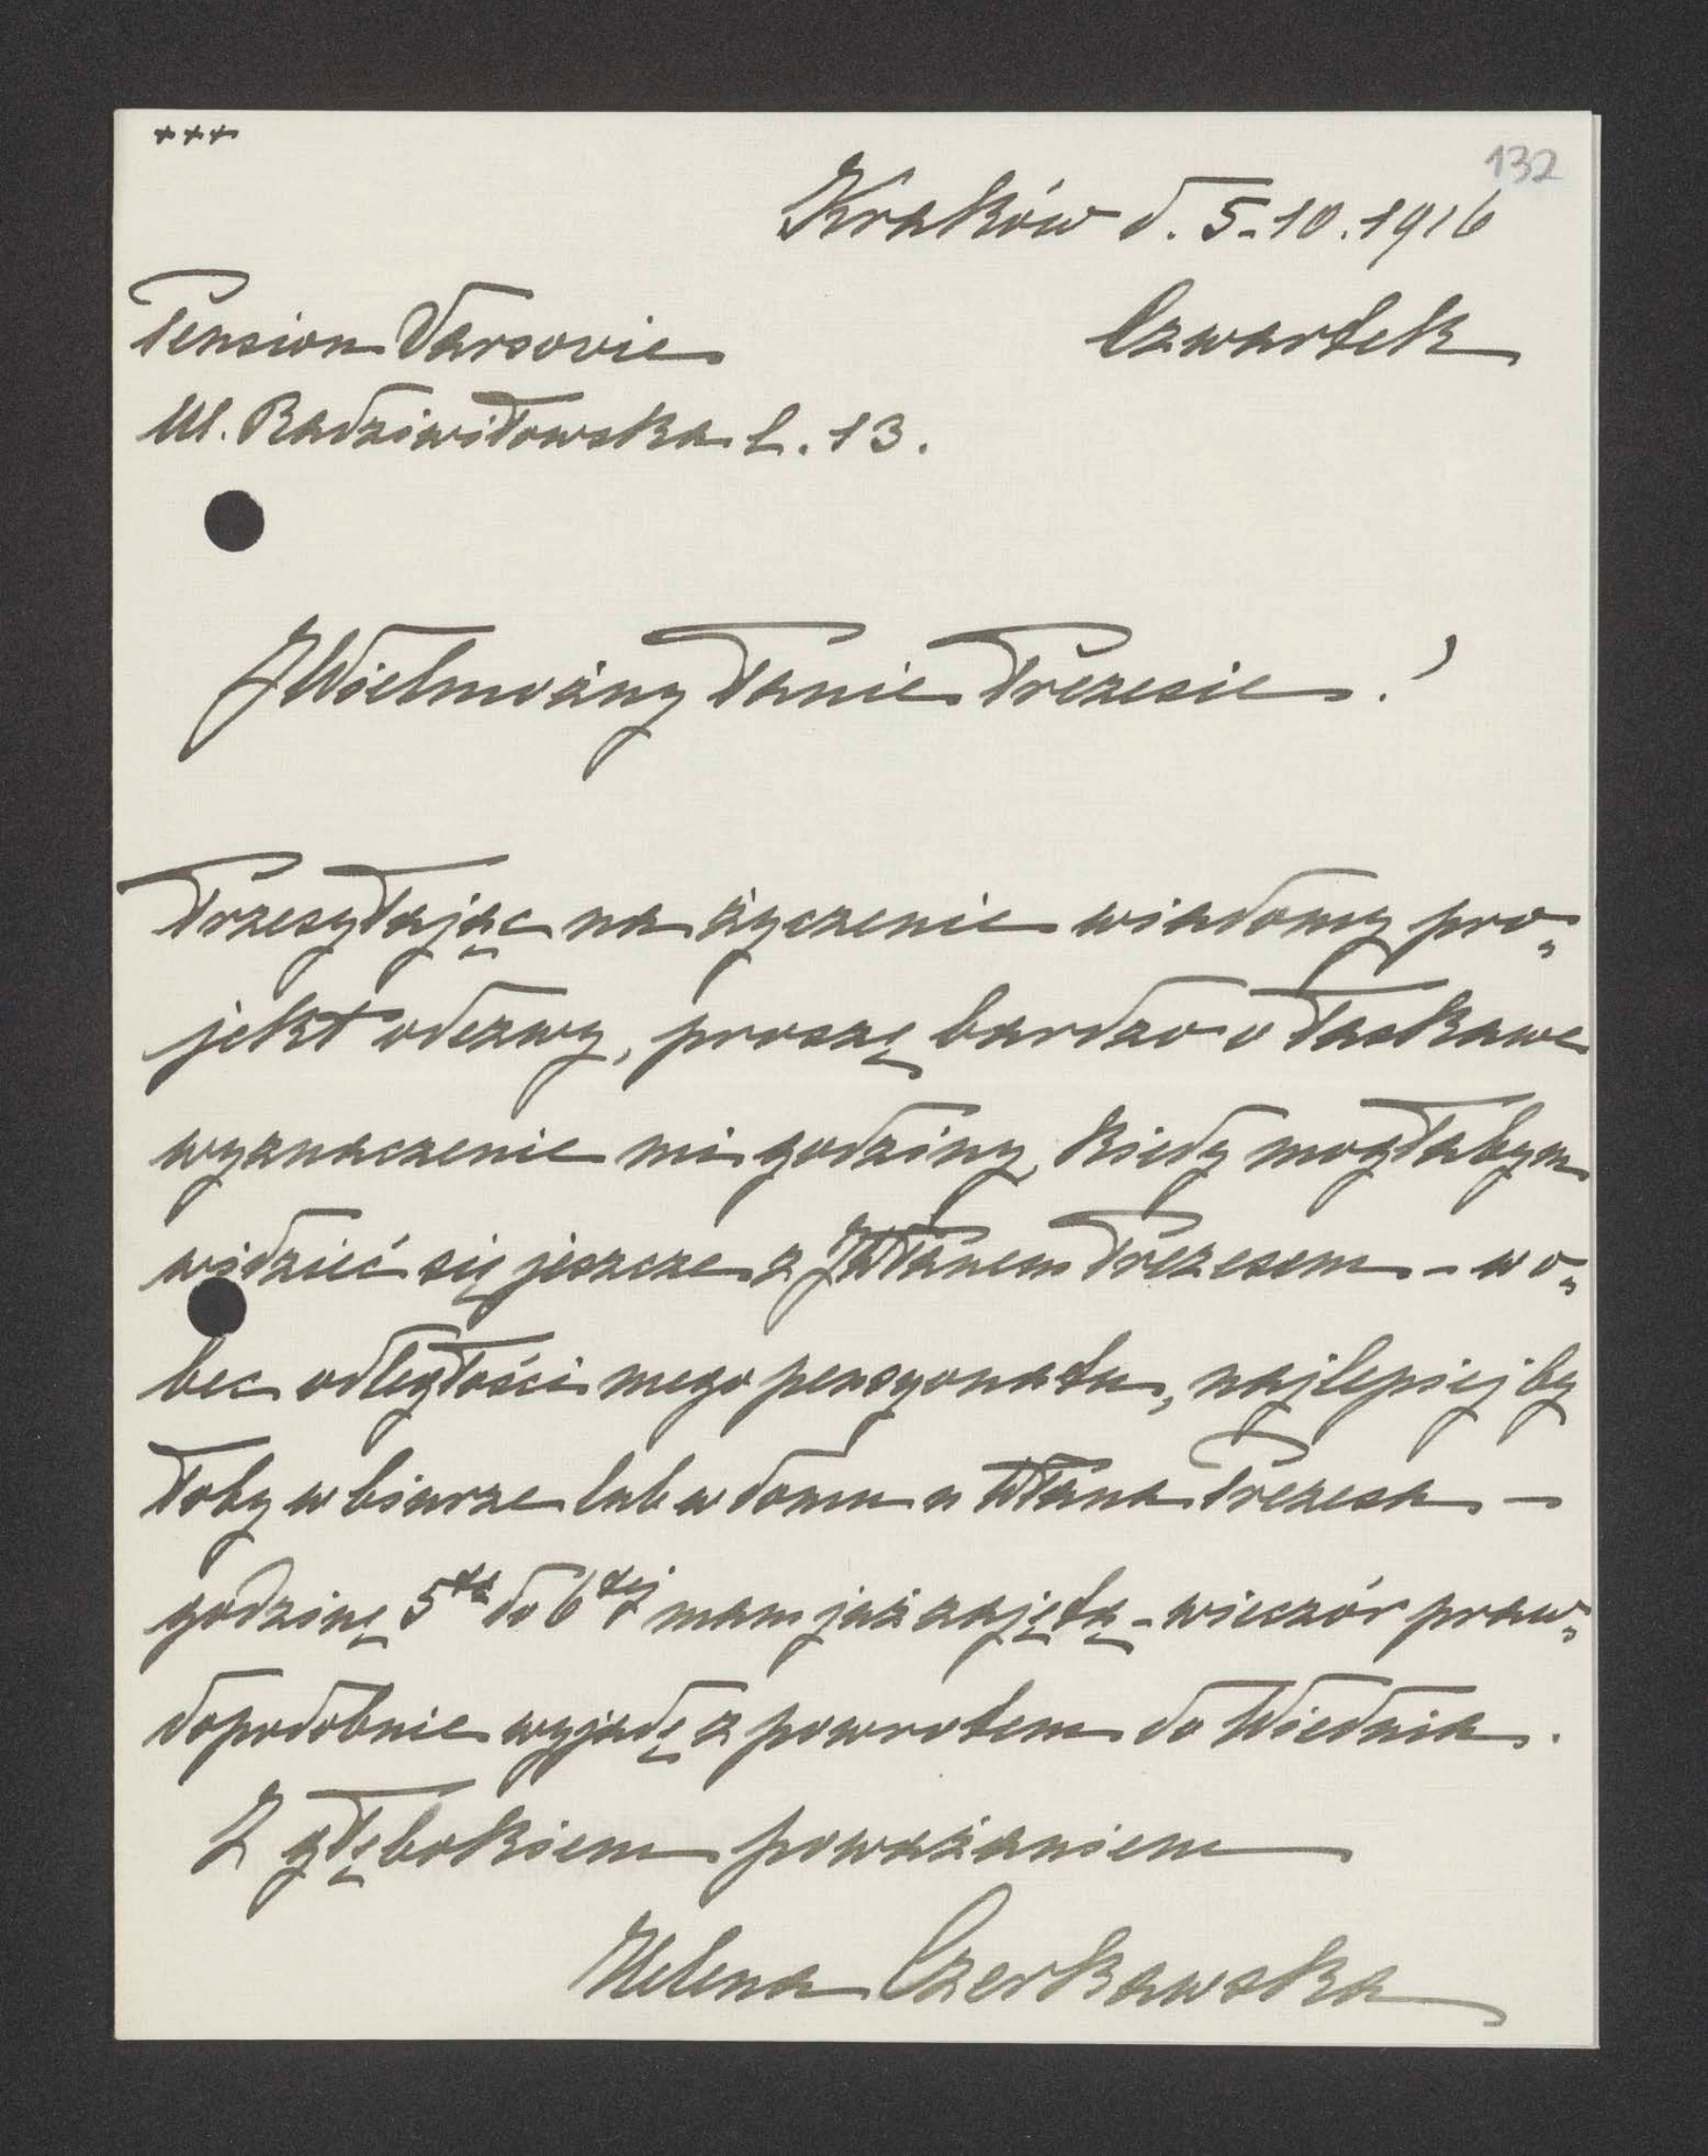 +++
132
Kraków d. 5-10.1916
Pension Varsovie
Czwartek
Ul. Radziwiłowska L. 13.
JWielmożny Panie Prezesie!
Przesyłając na życzenie wiadomy pro„
jekt odezwy, proszę bardzo o łaskawe
wyznaczenie mi godziny, kiedy mogłabym
widzieć się jeszcze z JWPanem Prezesem - wo„
bec odległości mego pensyonatu, najlepiej by
łoby w biurze lub w domu u WPana Prezesa —
godzinę 5tą do 6tej mam już zajętą - wieczór praw„
dopodobnie wyjadę z powrotem do Wiednia.
Z głębokiem poważaniem
Helena Czerkawska